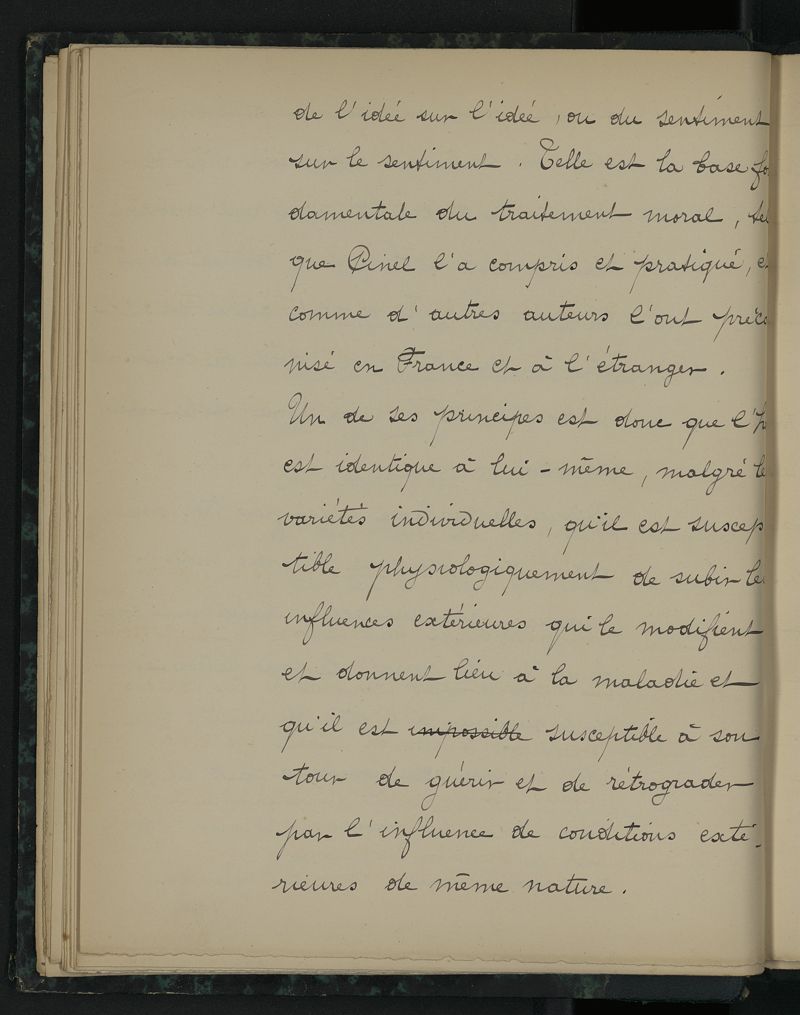 de l'idée sur l'idée, ou du sentiment
sur le sentiment. Telle est la base
damentale du traitement moral,
que Pinel l'a compris et pratiqué,
comme d'autres auteurs l'ont préco
nisé en France et à l'étranger.
Un de ses principes est donc que
est identique à lui-même, malgré
variétés individuelles, qu'il est suscep
tible physiologiquement de subir
influences extérieures qui le modifient
et donnent lieu à la maladie et
qu'il est impossible susceptible à son
tour de guérir et de rétrograder
par l'influence de conditions exté-
rieures de même nature.